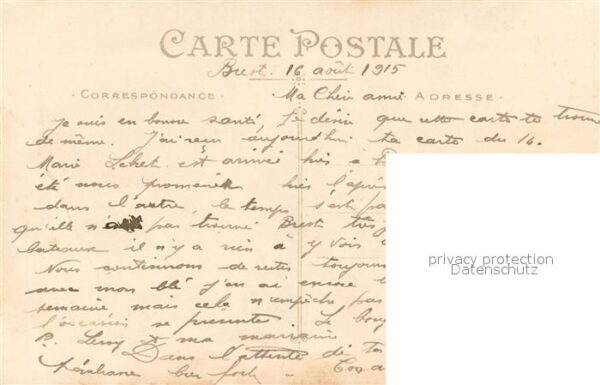 CARTE POSTALE
Brest. 16 août 1915
CORRESPONDANCE
Ma Chère amie
ADRESSE
Je suis en bonne santé, je désire que cette carte te trouve
de même. J'ai reçu aujourd'hui ta carte du 14.
Marie est arrivée hier à
été nous promener hier l'après
dans l'autre, le temps s'est
qu'elle n'a pas trouvé Brest très
bateaux il n'y a rien à y voir
Nous continuons de rester toujours
avec mon blé j'en ai encore
semaine, mais cela n'empêche pas
l'occasion se présente. Le
P. Leroy et ma marraine
Dans l'attente de tes
bien fort
privacy protection
Datenschutz